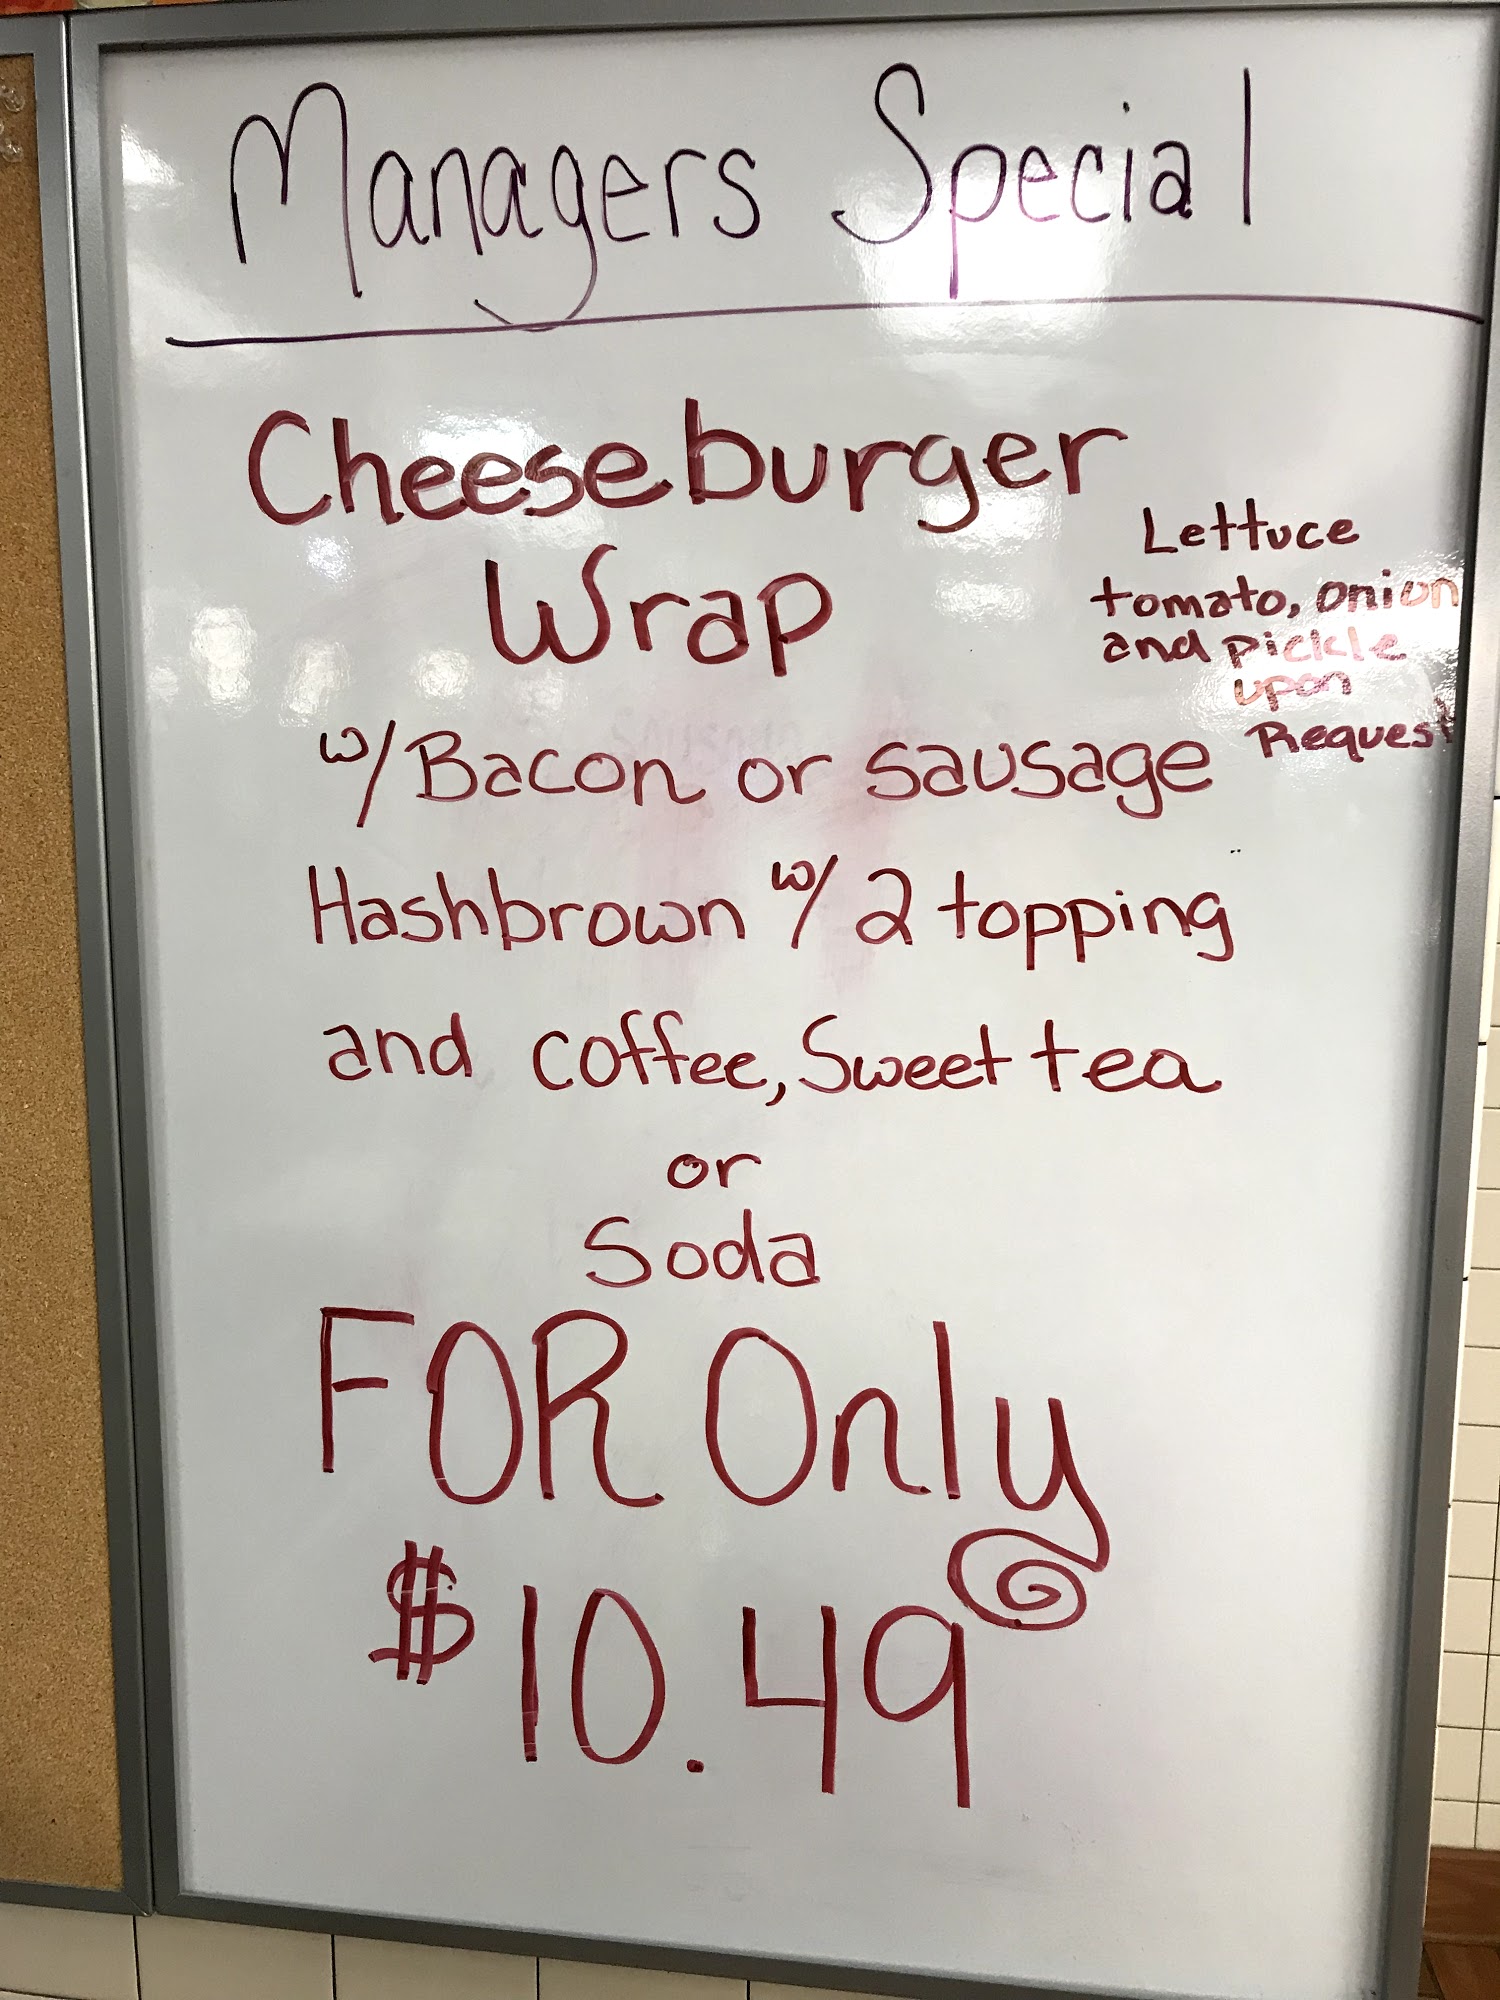 Managers Special
Cheeseburger
Wrap
Lettuce
tomato, onion
and pickle
upon
Request
w/ Bacon or sausage
Hashbrown w/ 2 topping
and coffee, Sweet tea
or
Soda
FOR Only
$10.49